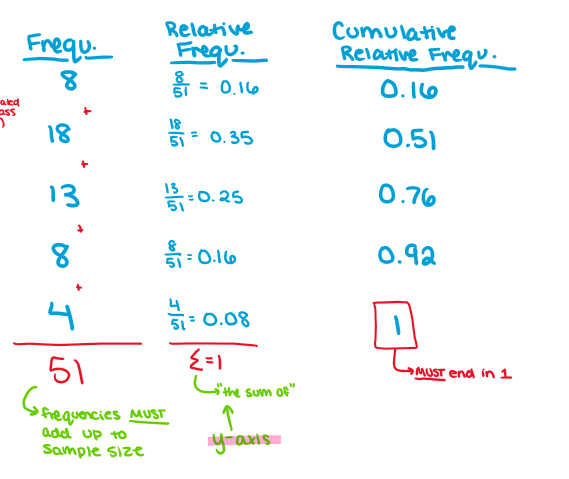 Frequ.
Relative
Frequ.
Cumulative
Relative Frequ.
8
8/51 = 0.16
0.16
+
18
18/51 = 0.35
0.51
+
13
13/51 = 0.25
0.76
+
8
8/51 = 0.16
0.92
+
4
4/51 = 0.08
1
51
Σ=1
MUST end in 1
"the sum of"
frequencies MUST
add up to
sample size
y-axis